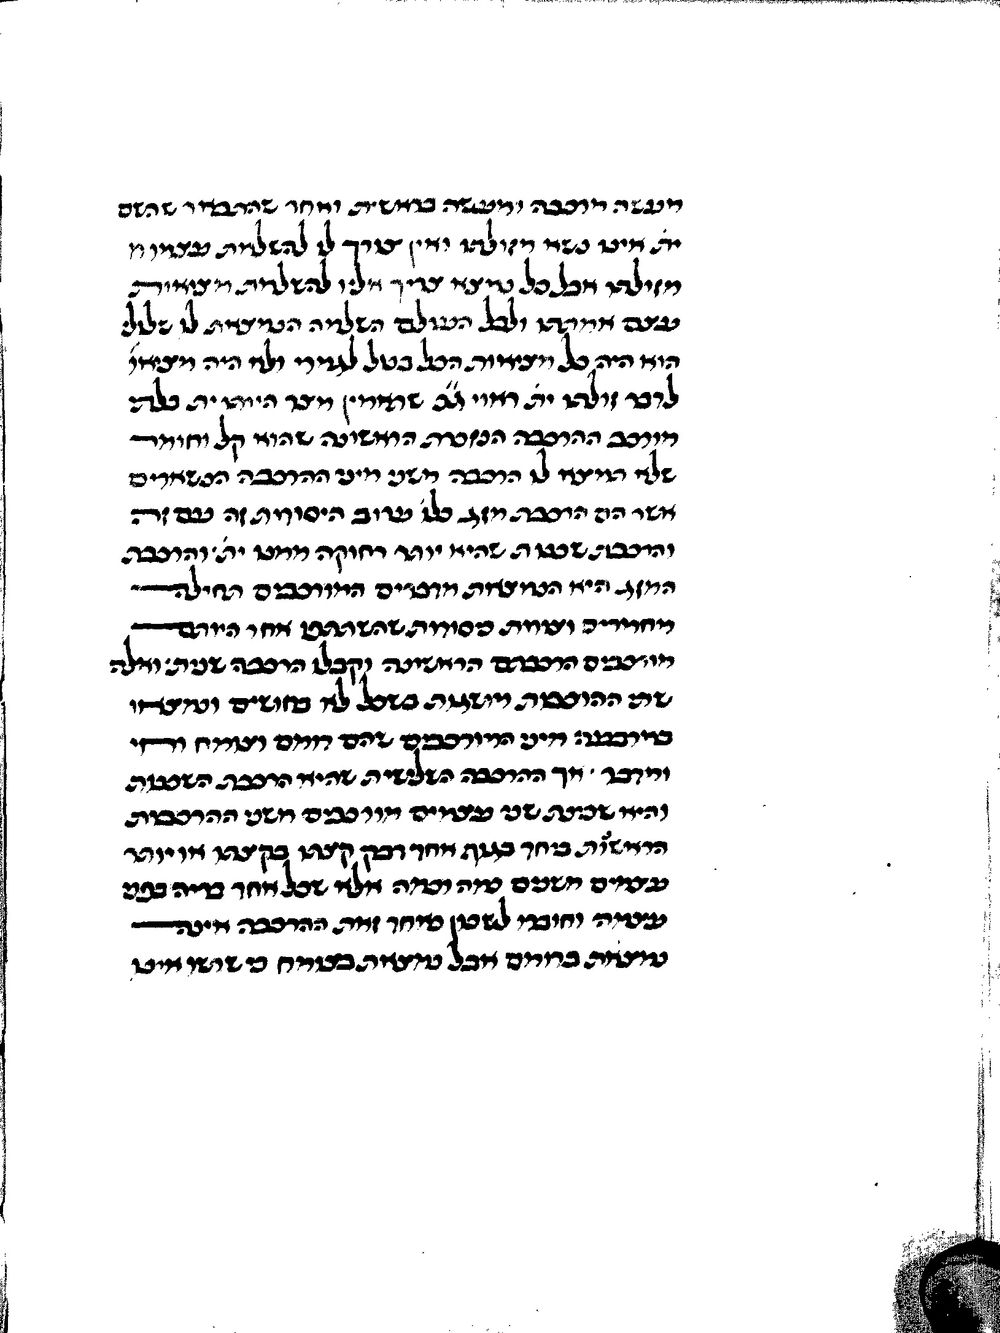 מעשה מרכבה ומעשה בראשית ואחר שהתבאר שהשם
ית׳ אינו נשא מזולתו ואין צורך לו להשלמת עצמו מ
מזולתו אבל כל נמצא צריך אליו להשלמת מציאות
עצם אמתתו ולכל העולם השלמה הנמצאת לו שלולי
הוא היה כל מציאות הכל בטל לגמרי ולא היה מציאו׳
לדבר זולתו ית׳ ראוי ג״כ שתאמין מצד היותו ית׳ בלתי
מורכב ההרכבה הנזכרת הראשונה שהוא קל וחומר
שלא תמצא לו הרכבה משני מיני ההרכבה הנשארים
אשר הם הרכבת מזג כלו׳ ערוב היסודות זה עם זה
והרכבת שכנות שהיא יותר רחוקה ממנו ית׳ והרכבת
המזג היא הנמצאת מדברים המורכבים תחילה
מחמרים וצורות יסודות שהשתתפו אחר היותם
מורכבים הרכבתם הראשונה וקבלו הרכבה שנית ואלה
שתי ההרכבות מושגות בשכל לא בחושים ונמצאו
בהרכבה מיני המורכבים שהם דומם וצומח וחי
ומדבר אך ההרכבה השלישית שהיא הרכבת השכנות
והיא שכונת שני עצמים מורכבים משני ההרכבות
הראשו׳ת ביחד בגוף אחד דבק קצתו בקצתו או יותר
עצמים משנים מזה ומזה אלא שכל אחד בריה בפני
עצמיה וחוברו לשכון ביחד זאת ההרכבה אינה
נמצאת בדומם אבל נמצאת בצומח כי שרשו אינו